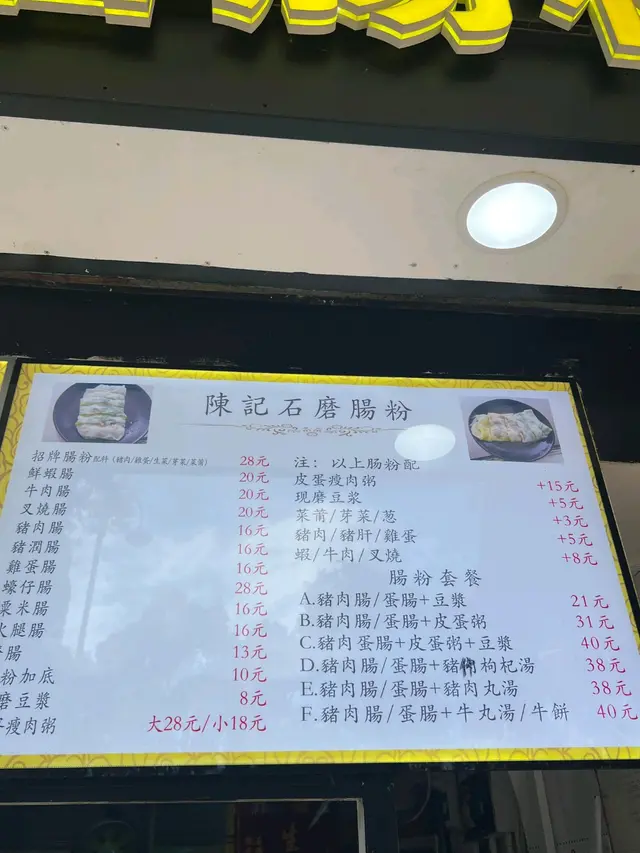 陳記石磨腸粉
招牌腸粉配料（豬肉/雞蛋/生菜/芽菜/菜莆） 28元
鮮蝦腸 20元
牛肉腸 20元
叉燒腸 20元
豬肉腸 16元
豬潤腸 16元
雞蛋腸 16元
蠔仔腸 28元
粟米腸 16元
火腿腸 16元
腸 13元
粉加底 10元
磨豆漿 8元
瘦肉粥 大28元/小18元
注：以上肠粉配
皮蛋瘦肉粥 +15元
现磨豆浆 +5元
菜莆/芽菜/葱 +3元
豬肉/豬肝/雞蛋 +5元
蝦/牛肉/叉燒 +8元
腸粉套餐
A.豬肉腸/蛋腸+豆漿 21元
B.豬肉腸/蛋腸+皮蛋粥 31元
C.豬肉蛋腸+皮蛋粥+豆漿 40元
D.豬肉腸/蛋腸+豬 枸杞湯 38元
E.豬肉腸/蛋腸+豬肉丸湯 38元
F.豬肉腸/蛋腸+牛丸湯/牛餅 40元